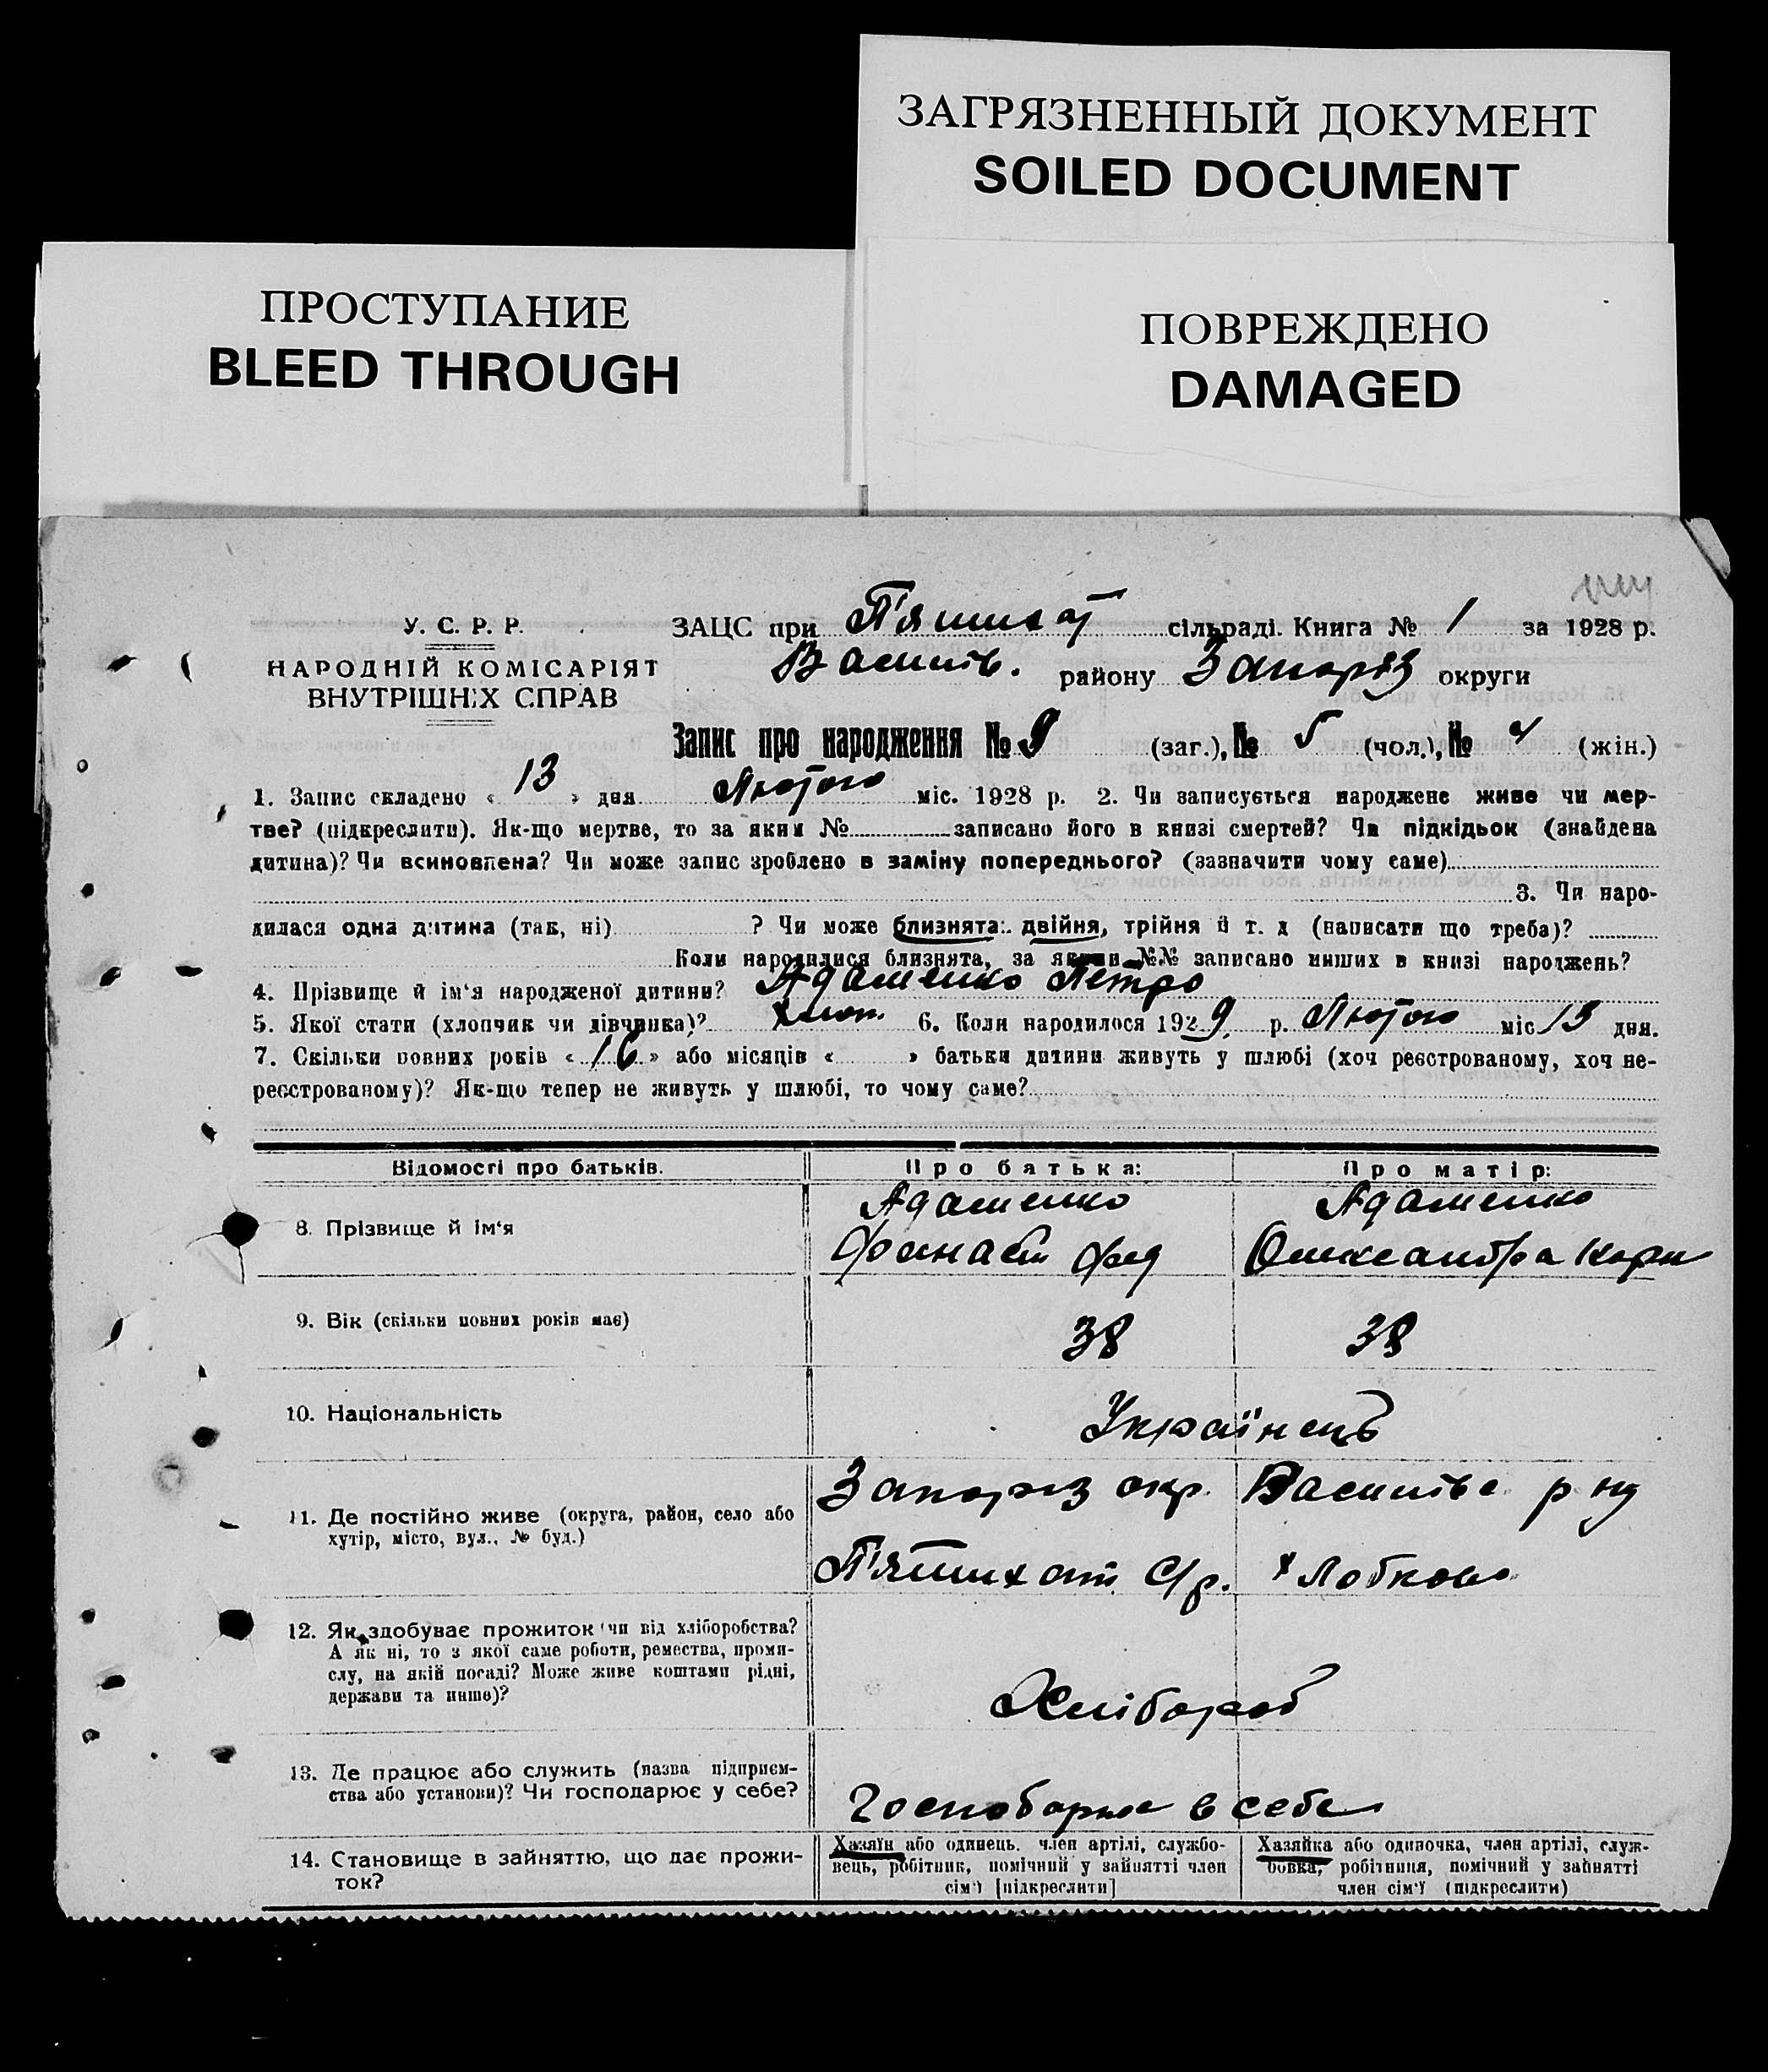 ЗАГРЯЗНЕННЫЙ ДОКУМЕНТ
SOILED DOCUMENT
ПРОСТУПАНИЕ
BLEED THROUGH
ПОВРЕЖДЕНО
DAMAGED
У. С. Р. Р.
НАРОДНІЙ КОМІСАРІЯТ
ВНУТРІШНІХ СПРАВ
ЗАЦС при П'ятихат сільраді. Книга № 1 за 1928 р.
Василів. району Запоріз округи
Запис про народження № 9 (заг.), № 5 (чол.), № 4 (жін.)
1. Запис складено « 13 » дня Лютого міс. 1928 р. 2. Чи записується народжене живе чи мер-
тве? (підкреслити). Як-що мертве, то за яким № записано його в книзі смертей? Чи підкідьок (знайдена
дитина)? Чи всиновлена? Чи може запис зроблено в заміну попереднього? (зазначити чому саме)
3. Чи наро-
дилася одна дитина (так, ні) ? Чи може близнята: двійня, трійня й т. д (написати що треба)?
Коли народилися близнята, за якими №№ записано инших в книзі народжень?
4. Прізвище й ім'я народженої дитини? Адаменко Петро
5. Якої стати (хлопчик чи дівчинка)? хлоп. 6. Коли народилося 1929 р. Лютого міс 13 дня.
7. Скільки повних років « 16 » або місяців « » батьки дитини живуть у шлюбі (хоч реєстрованому, хоч не-
реєстрованому)? Як-що тепер не живуть у шлюбі, то чому саме?
Відомості про батьків.
Про батька:
Про матір:
8. Прізвище й ім'я
Адаменко
Фед
Адаменко
Олександра Корн
9. Вік (скільки повних років має)
38
38
10. Національність
Українець
11. Де постійно живе (округа, район, село або
хутір, місто, вул., № буд.)
Запоріз окр. Василівс р ну
П'ятихат С/р. х Лобково
12. Як здобуває прожиток чи від хліборобства?
А як ні, то з якої саме роботи, ремества, проми-
слу, на якій посаді? Може живе коштами рідні,
держави та инше)?
Хлібороб
13. Де працює або служить (назва підприєм-
ства або установи)? Чи господарює у себе?
Господарює в себе
14. Становище в зайняттю, що дає прожи-
ток?
Хазяїн або одинець. член артілі, службо-
вець, робітник, помічний у зайнятті член
сім'ї [підкреслити]
Хазяйка або одиночка, член артілі, служ-
бовка, робітниця, помічний у зайнятті
член сім'ї (підкреслити)